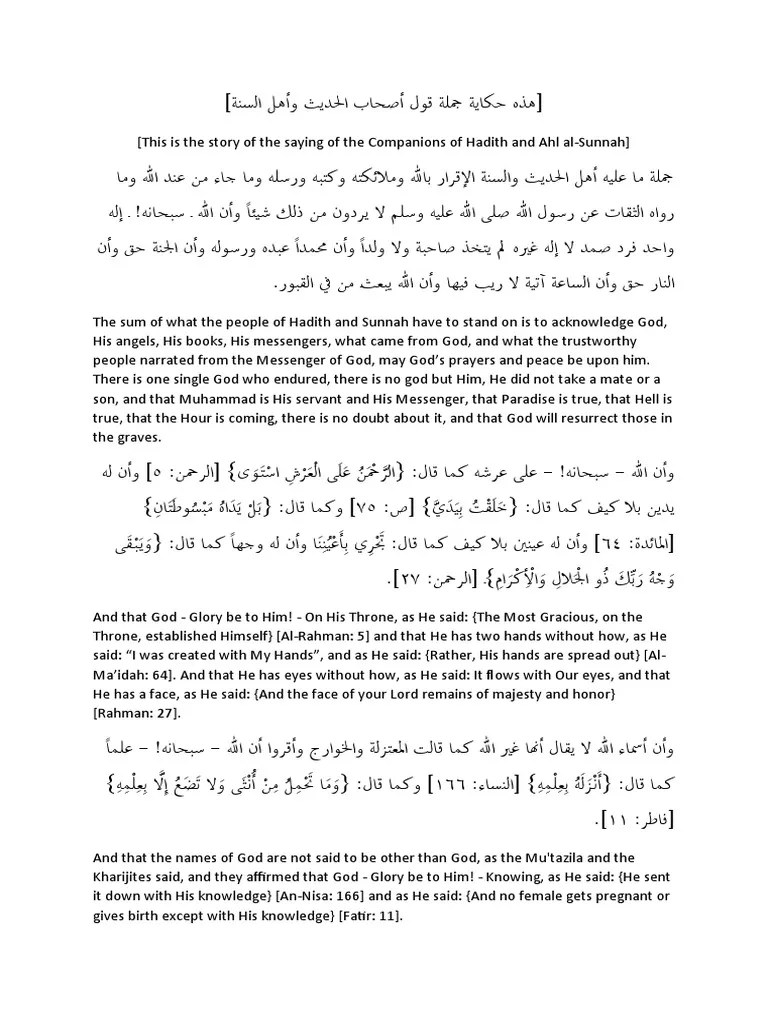 [هذه حكاية جملة قول أصحاب الحديث وأهل السنة]
[This is the story of the saying of the Companions of Hadith and Ahl al-Sunnah]
جملة ما عليه أهل الحديث والسنة الإقرار بالله وملائكته وكتبه ورسله وما جاء من عند الله وما
رواه الثقات عن رسول الله صلى الله عليه وسلم لا يردون من ذلك شيئاً وأن الله ـ سبحانه! ـ إله
واحد فرد صمد لا إله غيره لم يتخذ صاحبة ولا ولداً وأن محمداً عبده ورسوله وأن الجنة حق وأن
النار حق وأن الساعة آتية لا ريب فيها وأن الله يبعث من في القبور.
The sum of what the people of Hadith and Sunnah have to stand on is to acknowledge God,
His angels, His books, His messengers, what came from God, and what the trustworthy
people narrated from the Messenger of God, may God’s prayers and peace be upon him.
There is one single God who endured, there is no god but Him, He did not take a mate or a
son, and that Muhammad is His servant and His Messenger, that Paradise is true, that Hell is
true, that the Hour is coming, there is no doubt about it, and that God will resurrect those in
the graves.
وأن الله – سبحانه! – على عرشه كما قال: {الرَّحْمَنُ عَلَى الْعَرْشِ اسْتَوَى} [الرحمن: ٥] وأن له
يدين بلا كيف كما قال: {خَلَقْتُ بِيَدَيَّ} [ص: ٧٥] وكما قال: {بَلْ يَدَاهُ مَبْسُوطَتَانِ}
[المائدة: ٦٤] وأن له عينين بلا كيف كما قال: تَجْرِي بِأَعْيُنِنَا وأن له وجهاً كما قال: {وَيَبْقَى
وَجْهُ رَبِّكَ ذُو الْجَلالِ وَالْأِكْرَامِ}. [الرحمن: ٢٧].
And that God - Glory be to Him! - On His Throne, as He said: {The Most Gracious, on the
Throne, established Himself} [Al-Rahman: 5] and that He has two hands without how, as He
said: “I was created with My Hands”, and as He said: {Rather, His hands are spread out} [Al-
Ma’idah: 64]. And that He has eyes without how, as He said: It flows with Our eyes, and that
He has a face, as He said: {And the face of your Lord remains of majesty and honor}
[Rahman: 27].
وأن أسماء الله لا يقال أنها غير الله كما قالت المعتزلة والخوارج وأقروا أن الله – سبحانه! – علماً
كما قال: {أَنْزَلَهُ بِعِلْمِهِ} [النساء: ١٦٦] وكما قال: {وَمَا تَحْمِلُ مِنْ أُنْثَى وَلا تَضَعُ إِلَّا بِعِلْمِهِ}
[فاطر: ١١].
And that the names of God are not said to be other than God, as the Mu'tazila and the
Kharijites said, and they affirmed that God - Glory be to Him! - Knowing, as He said: {He sent
it down with His knowledge} [An-Nisa: 166] and as He said: {And no female gets pregnant or
gives birth except with His knowledge} [Fatir: 11].